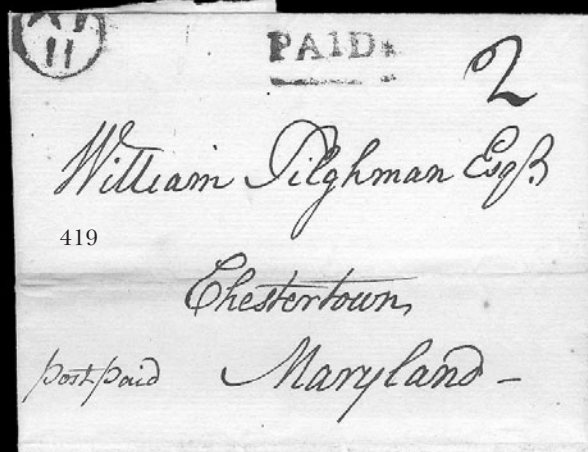 11
PAID
2
William Tilghman Esqr.
419
Chestertown,
post paid Maryland -